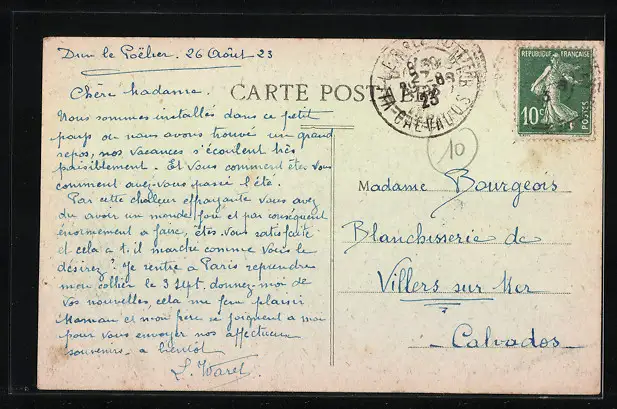 Dun le Poëlier. 26 Août 23
Chère Madame.
Nous sommes installés dans ce petit
pays où nous avons trouvé un grand
repos, nos vacances s'écoulent très
paisiblement. Et vous comment êtes vous
comment avez-vous passé l'été.
Par cette chaleur effrayante vous avez
du avoir un monde fou et par conséquent
énormément à faire, êtes vous satisfaite
et cela a t. il marché comme vous le
désirez? Je rentre à Paris reprendre
mon collier le 3 Sept. donnez-moi de
vos nouvelles, cela me fera plaisir
Maman et mon frère se joignent à moi
pour vous envoyer nos affectueux
souvenirs. à bientôt
CARTE POST
23
REPUBLIQUE FRANÇAISE
10c
POSTES
10
Madame Bourgeois
Blanchisserie de
Villers sur Mer
Calvados